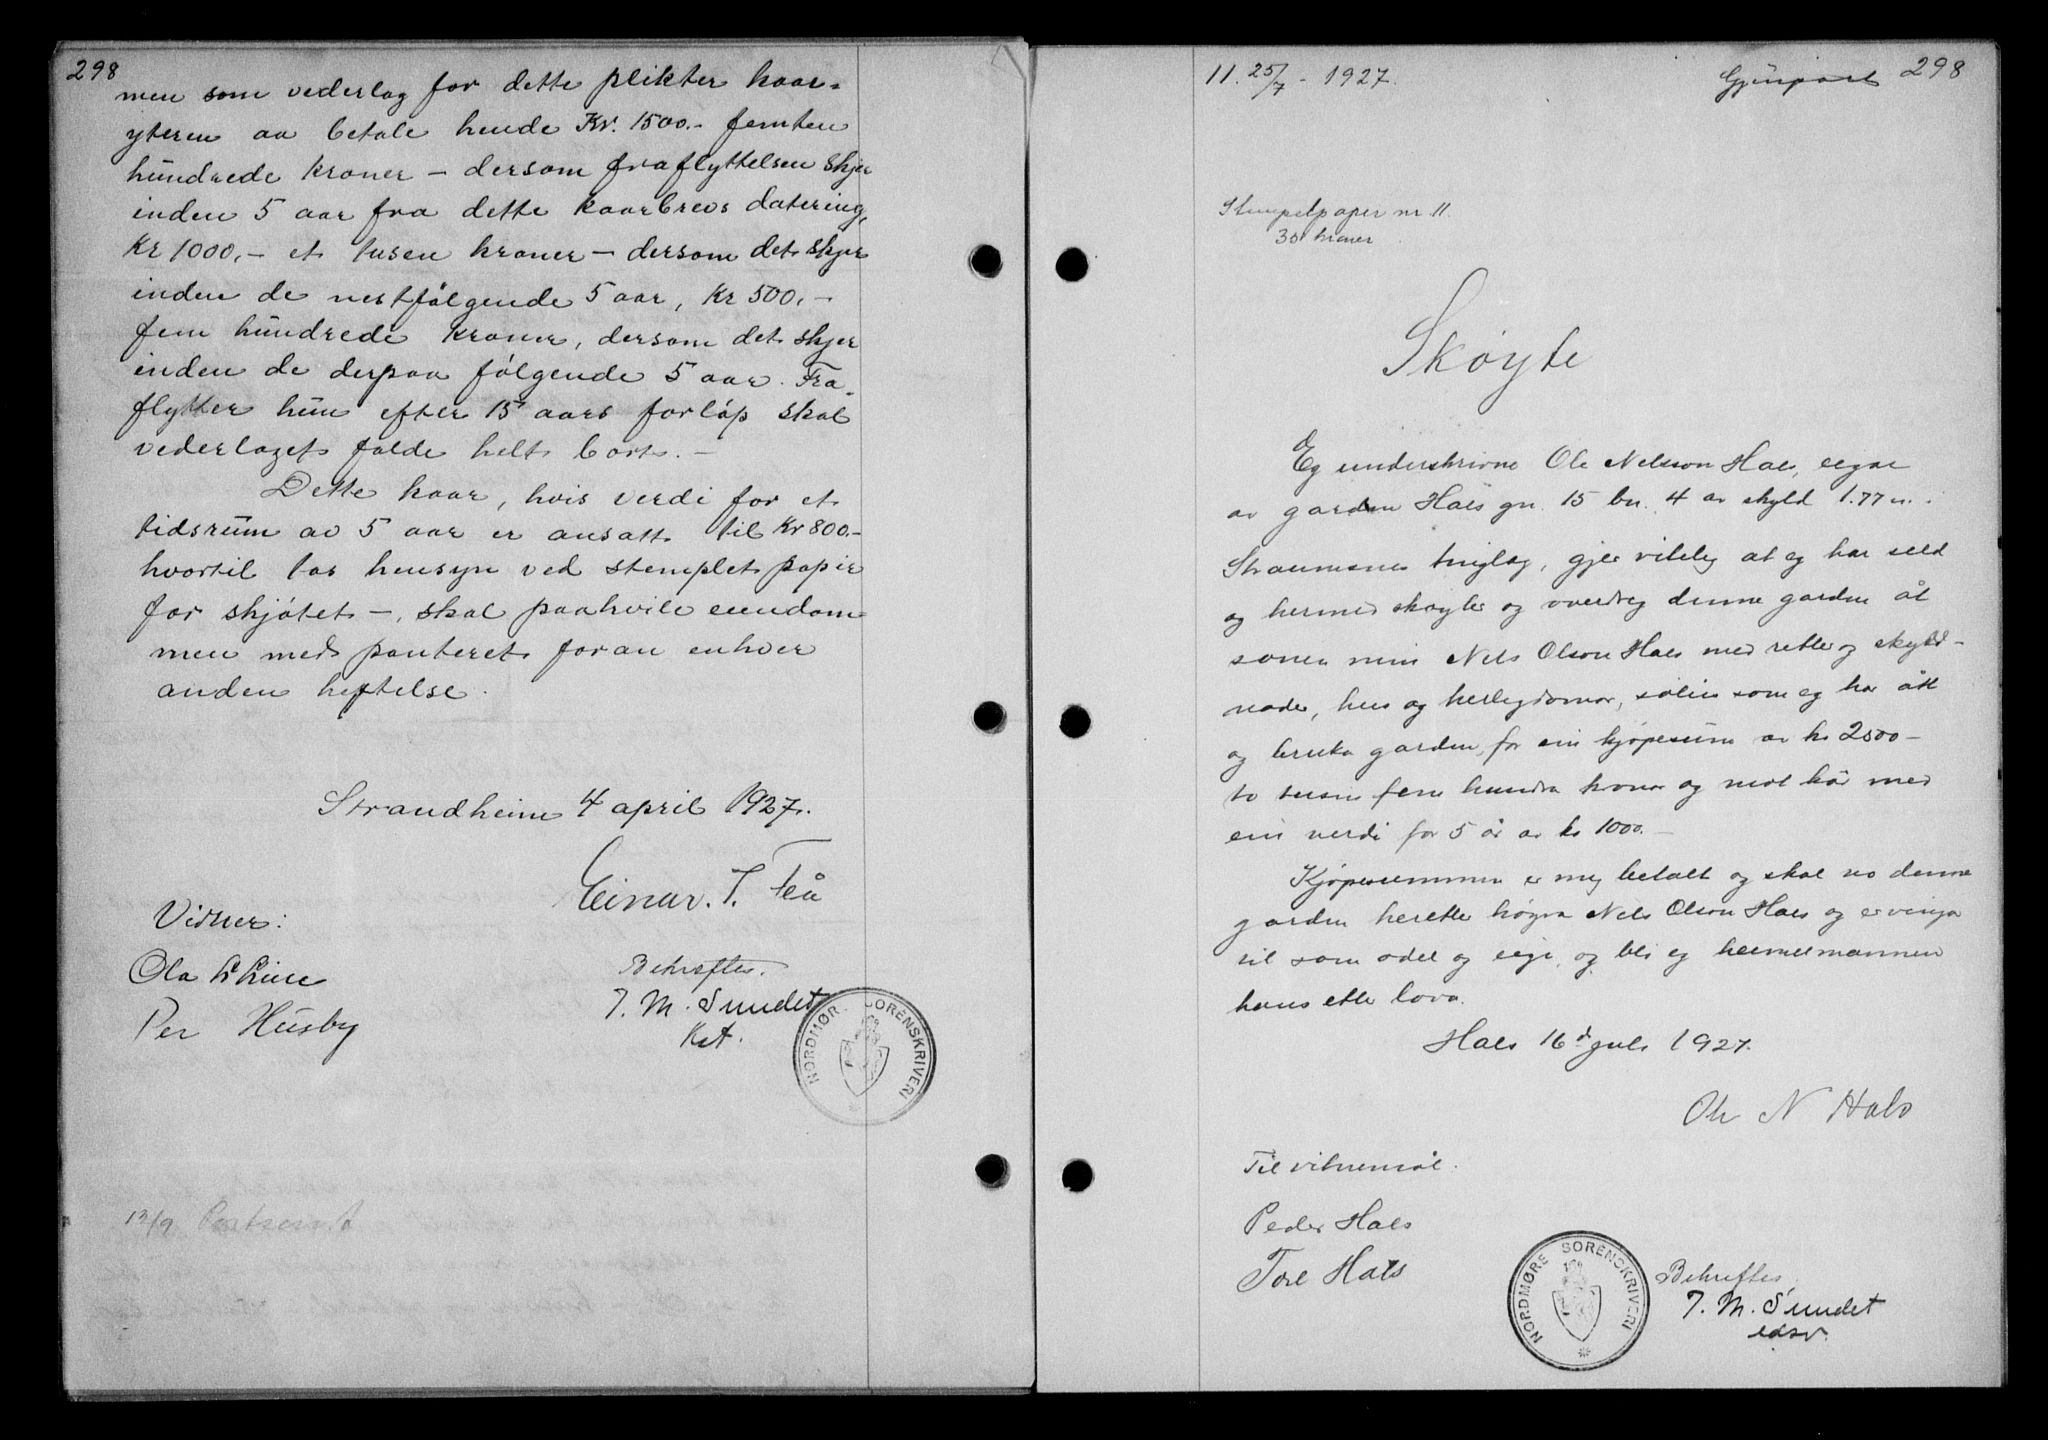 298
men som vederlag for dette plikter kaar-
yteren aa betale hende Kr. 1500.- femten
hundrede kroner - dersom fraflyttelsen skjer
inden 5 aar fra dette kaarbrevs datering,
Kr 1000,- et tusen kroner - dersom det skjer
inden de nestfølgende 5 aar, Kr 500,-
fem hundrede kroner, dersom det skjer
inden de derpaa følgende 5 aar. Fra-
flytter hun efter 15 aars forløp skal
vederlaget falde helt bort. -
Dette kaar, hvis verdi for et
tidsrum av 5 aar er ansatt til Kr 800.-
hvortil tas hensyn ved stemplet papir
for skjøtet -, skal paahvile eiendom-
men med panteret foran enhver
anden heftelse.
Strandheim 4 april 1927.
Einar. T. Teå
Vidner:
Ola
Per Husby
Bekreftes.
T. M. Sundet
Kst.
NORDMØRE SORENSKRIVERI
13/9
11. 25/7 - 1927.
Gjenpart 298
Stempelpaper nr 11.
30 kroner
Skøyte
Eg underskrivne Ole Nelsson Hals, eigar
av garden Hals gn. 15 bn. 4 av skyld 1.77 m.
Straumsnes tinglag, gjer vitleg at eg har seld
og hermed skøyter og overdreg denne garden åt
sonen min Nels Olson Hals med rettar og skyld-
nader, hus og herlegdomar, soleis som eg har ått
og bruka garden, for ein kjøpesum av kr 2500-
to tusen fem hundra kroner og mot kår med
ein verdi for 5 år av kr 1000.-
Kjøpesummen er meg betalt og skal no denne
garden heretter høyra Nels Olson Hals og ervingar
til som odel og eige, og blir eg heimelsmannen
hans etter lova.
Hals 16d juli 1927.
Ole N Hals
Til vitnemål.
Peder Hals
Tore Hals
NORDMØRE SORENSKRIVERI
Bekreftes
T. M. Sundet
edsv.